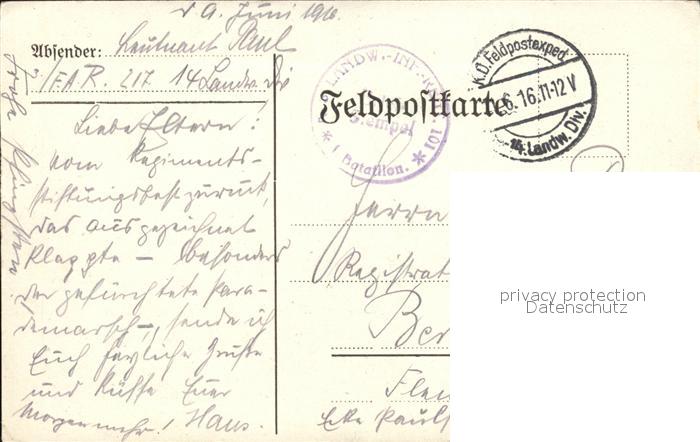 d 9. Juni 1916.
Absender: Leutnant Paul
2/F.A.R. 217 14 Landw. Div
Frohe Pfingsten
Liebe Eltern!
vom Regiments-
stiftungsfest zurück,
das ausgezeichnet
klappte – besonders
der gefürchtete Para-
demarsch –, sende ich
Euch herzliche Grüße
und Küsse Euer
Morgen mehr! Hans.
LANDW.-INF.-R 101
Stempel
* I Bataillon. *
Feldpostkarte
K.D. Feldpostexped.
6.16.11-12V
14. Landw. Div.
Herrn
Registrat
Ber
Flen
Ecke Pauls
privacy protection
Datenschutz